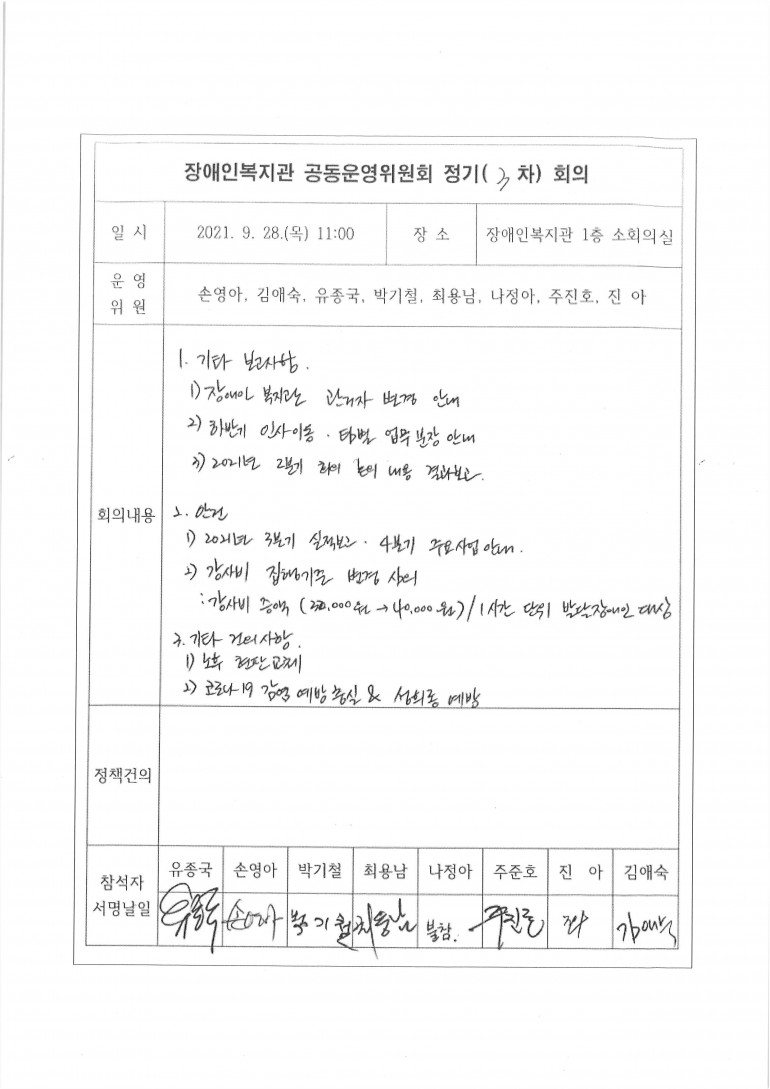 장애인복지관 공동운영위원회 정기( 3 차) 회의
일 시
2021. 9. 28.(목) 11:00
장 소
장애인복지관 1층 소회의실
운 영
위 원
손영아, 김애숙, 유종국, 박기철, 최용남, 나정아, 주진호, 진 아
회의내용
1. 기타 보고사항.
1) 장애인 복지관 관리자 변경 안내
2) 하반기 인사이동 · 팀별 업무분장 안내
3) 2021년 2분기 회의 논의 내용 결과보고.
2. 안건
1) 2021년 3분기 실적보고 · 4분기 주요사업안내.
2) 강사비 집행기준 변경 상의
: 강사비 증액 (30,000원 → 40,000원) / 1시간 단위 발달장애인 대상
3. 기타 건의사항.
1) 노후 현판교체
2) 코로나19 감염 예방 충실 & 성희롱 예방
정책건의
참석자
서명날일
유종국 손영아 박기철 최용남 나정아 주준호 진 아 김애숙
유종국 손영아 박기철 최용남 불참. 주진호 김애숙